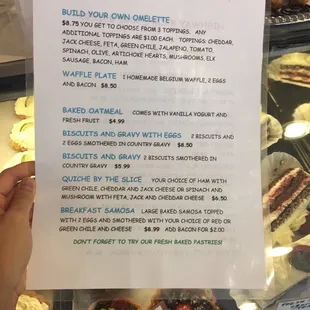 BUILD YOUR OWN OMELETTE
$8.75 YOU GET TO CHOOSE FROM 3 TOPPINGS. ANY
ADDITIONAL TOPPINGS ARE $1.00 EACH. TOPPINGS: CHEDDAR,
JACK CHEESE, FETA, GREEN CHILE, JALAPENO, TOMATO,
SPINACH, OLIVE, ARTICHOKE HEARTS, MUSHROOMS, ELK
SAUSAGE, BACON, HAM.
WAFFLE PLATE 1 HOMEMADE BELGIUM WAFFLE, 2 EGGS
AND BACON $8.50
BAKED OATMEAL COMES WITH VANILLA YOGURT AND
FRESH FRUIT $4.99
BISCUITS AND GRAVY WITH EGGS 2 BISCUITS AND
2 EGGS SMOTHERED IN COUNTRY GRAVY $8.50
BISCUITS AND GRAVY 2 BISCUITS SMOTHERED IN
COUNTRY GRAVY $5.99
QUICHE BY THE SLICE YOUR CHOICE OF HAM WITH
GREEN CHILE, CHEDDAR AND JACK CHEESE OR SPINACH AND
MUSHROOM WITH FETA, JACK AND CHEDDAR CHEESE $6.50
BREAKFAST SAMOSA LARGE BAKED SAMOSA TOPPED
WITH 2 EGGS AND SMOTHERED WITH YOUR CHOICE OF RED OR
GREEN CHILE AND CHEESE $8.99 ADD BACON FOR $2.00
DON'T FORGET TO TRY OUR FRESH BAKED PASTRIES!